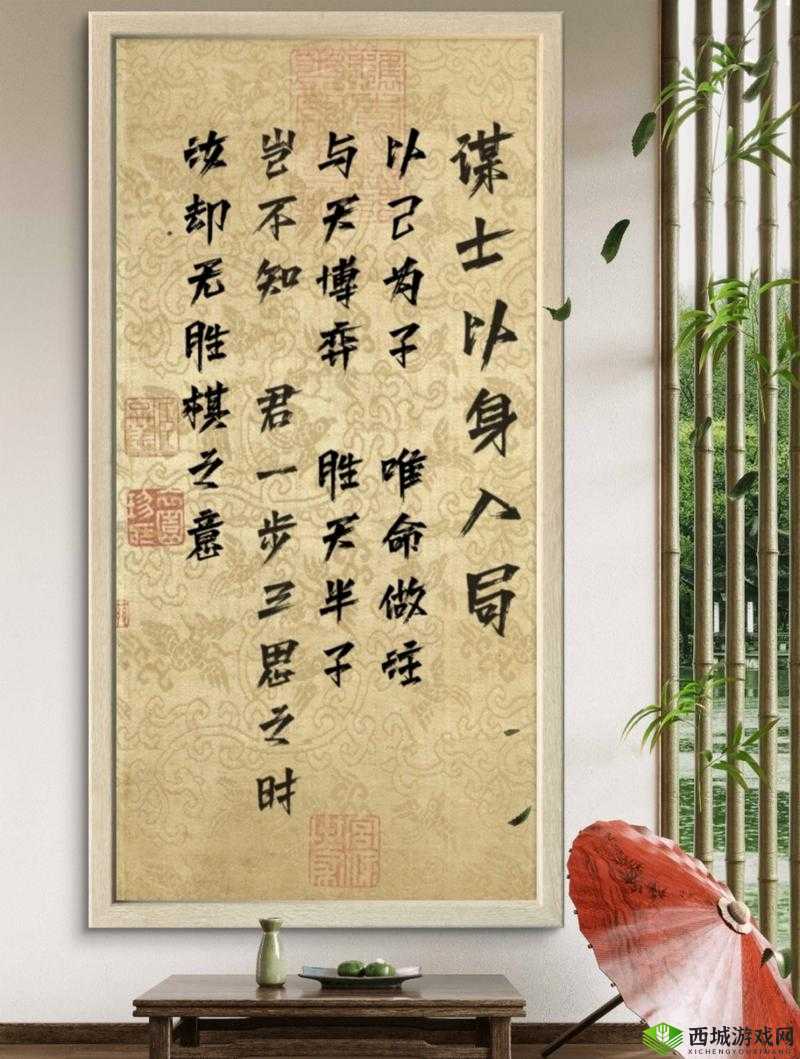 谋士以身入局
以己为子 唯命做注
与天博弈 胜天半子
岂不知 君一步三思之时
汝却无胜棋之意
西城游戏网
XICHENGYOUXIWANG